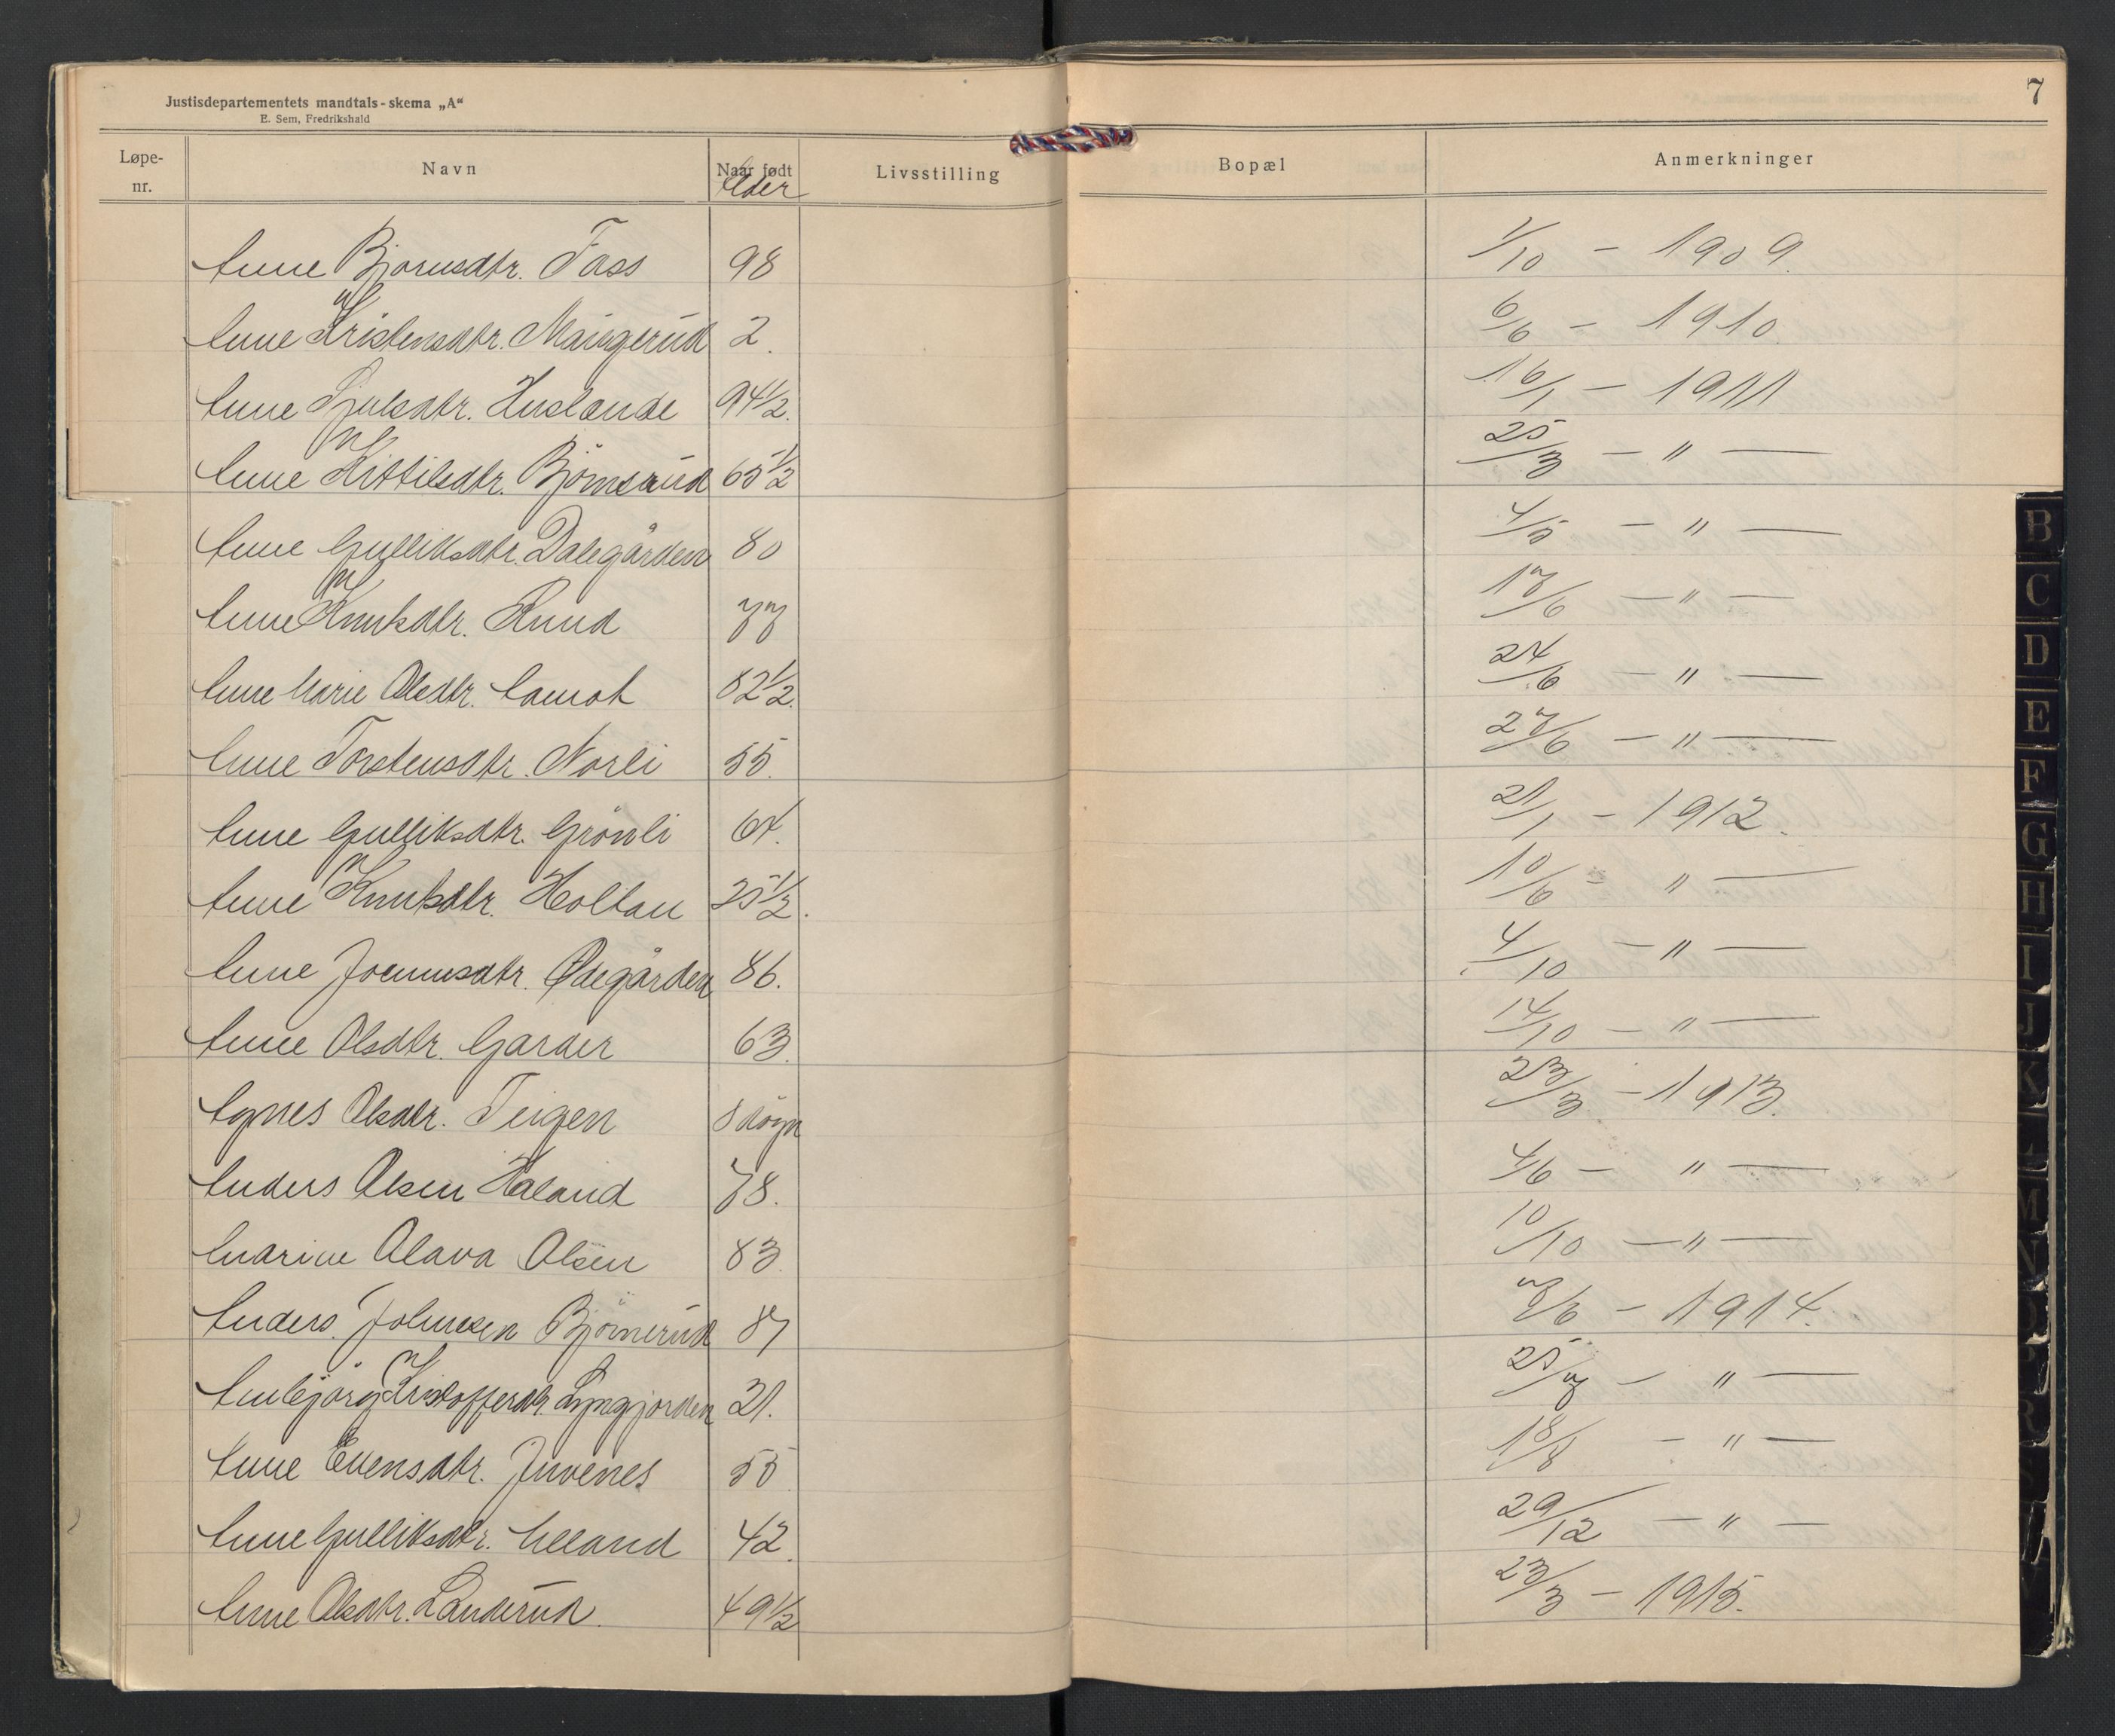 7
Justisdepartementets mandtals-skema „A“
E. Sem, Fredrikshald
Løpe-nr. Navn Naar født Alder Livsstilling Bopæl Anmerkninger
Anne Bjørnsdtr. Fass 98 1/10 - 1909.
Anne Kristensdtr. Maugerud 2. 6/6 - 1910.
Anne Kjulsdtr. Huslænde 94 1/2. 16/1 - 1911
Anne Kittilsdtr. Björnsrud 65 1/2 25/3 - " -
Anne Gulliksdtr. Dalegården 80 4/5 - " -
Anne Knutsdtr. Ruud 77 17/6 - " -
Anne Marie Olsdtr. Aamot 82 1/2. 24/6 - " -
Anne Torstensdtr. Norli 55. 27/6 - " -
Anne Gulliksdtr. Grönli 64. 21/1 - 1912.
Anne Knutsdtr. Holtan 25 1/2. 10/6 - " -
Anne Joennsdtr. Ødegården 86. 4/10 - " -
Anne Olsdtr. Garder 63. 14/10 - " -
Agnes Olsdtr. Teigen 8 døgn 23/3 - 1913.
Anders Olsen Håland 78. 4/6 - " -
Anarine Olava Olsen 83. 10/10 - " -
Anders Johnsen Björnerud 87 7/6 - 1914.
Anbjørg Kristofferdtr. Lyngjorden 31. 25/7 - " -
Anne Evensdtr. Juvenes 55 18/8 - " -
Anne Gulliksdtr. Ulland 42. 29/12 - " -
Anne Olsdtr. Landerud. 49 1/2 23/3 - 1915.
B
C
D
E
F
G
H
I
J
K
L
M
N